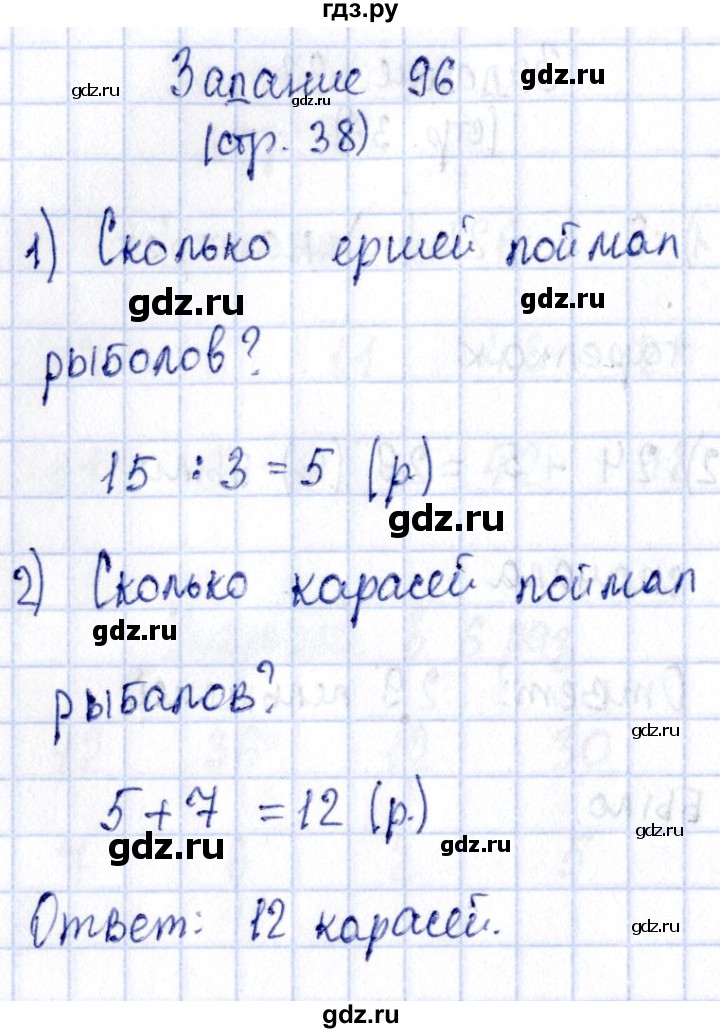 гдз.ру
Задание 96
gdz.ru
gdz.ru
gdz.ru
(стр. 38)
1) Сколько ершей поймал
gdz.ru
gdz.ru
рыболов?
15 : 3 = 5 (р)
gdz.ru
2) Сколько карасей поймал
gdz.ru
рыбалов?
gdz.ru
5 + 7 = 12 (р.)
gdz.ru
gdz.ru
gdz.ru
Ответ: 12 карасей.
gdz.ru
gdz.ru
gdz.ru